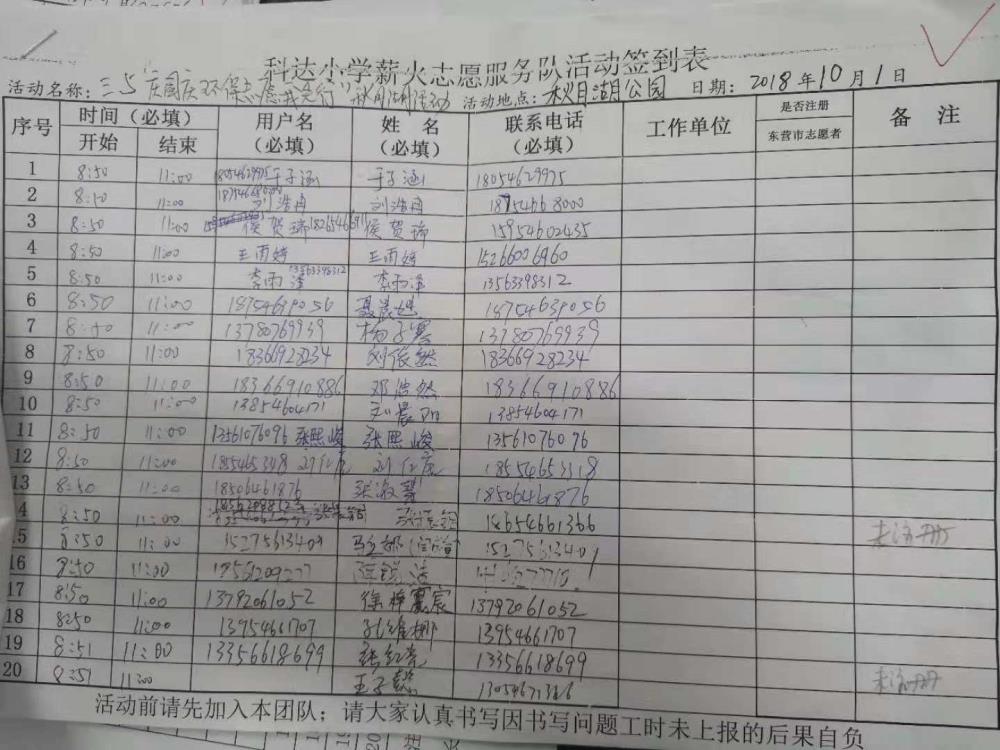 科达小学薪火志愿服务队活动签到表
活动名称：三5"庆国庆环保志愿我先行"秋月湖活动 活动地点：秋月湖公园 日期：2018年10月1日
序号 时间（必填） 用户名（必填） 姓名（必填） 联系电话（必填） 工作单位 是否注册 备注
开始 结束 东营市志愿者
1 8:50 11:00 18054629975 于子涵 于子涵 18054629975
2 8:50 11:00 刘浩冉 刘浩冉 18954668000
3 8:50 11:00 侯贺瑞 侯贺瑞 15954602435
4 8:50 11:00 王雨婷 王雨婷 15266006960
5 8:50 11:00 李雨泽 13563398312 李雨泽 13563398312
6 8:50 11:00 18754639056 18754639056
7 8:50 11:00 13780769939 杨子骞 13780769939
8 8:50 11:00 18366928234 刘依然 18366928234
9 8:50 11:00 18366910886 邓浩然 18366910886
10 8:50 11:00 13854604171 刘晨阳 13854604171
11 8:50 11:00 13561076096 张熙峻 张熙峻 13561076096
12 8:50 11:00 刘仁虎 刘仁虎 18554653318
13 8:50 11:00 18506461876 18506461876
4 8:50 11:00 18654661366
5 8:50 11:00 15275613409 15275613409 未注册
16 8:50 11:00
17 8:50 11:00 13792061052 徐梓宸 13792061052
18 8:50 11:00 13954661707 孔维娜 13954661707
19 8:51 11:00 13356618699 张红亮 13356618699
20 8:51 11:00 王子懿 未注册
活动前请先加入本团队；请大家认真书写因书写问题工时未上报的后果自负